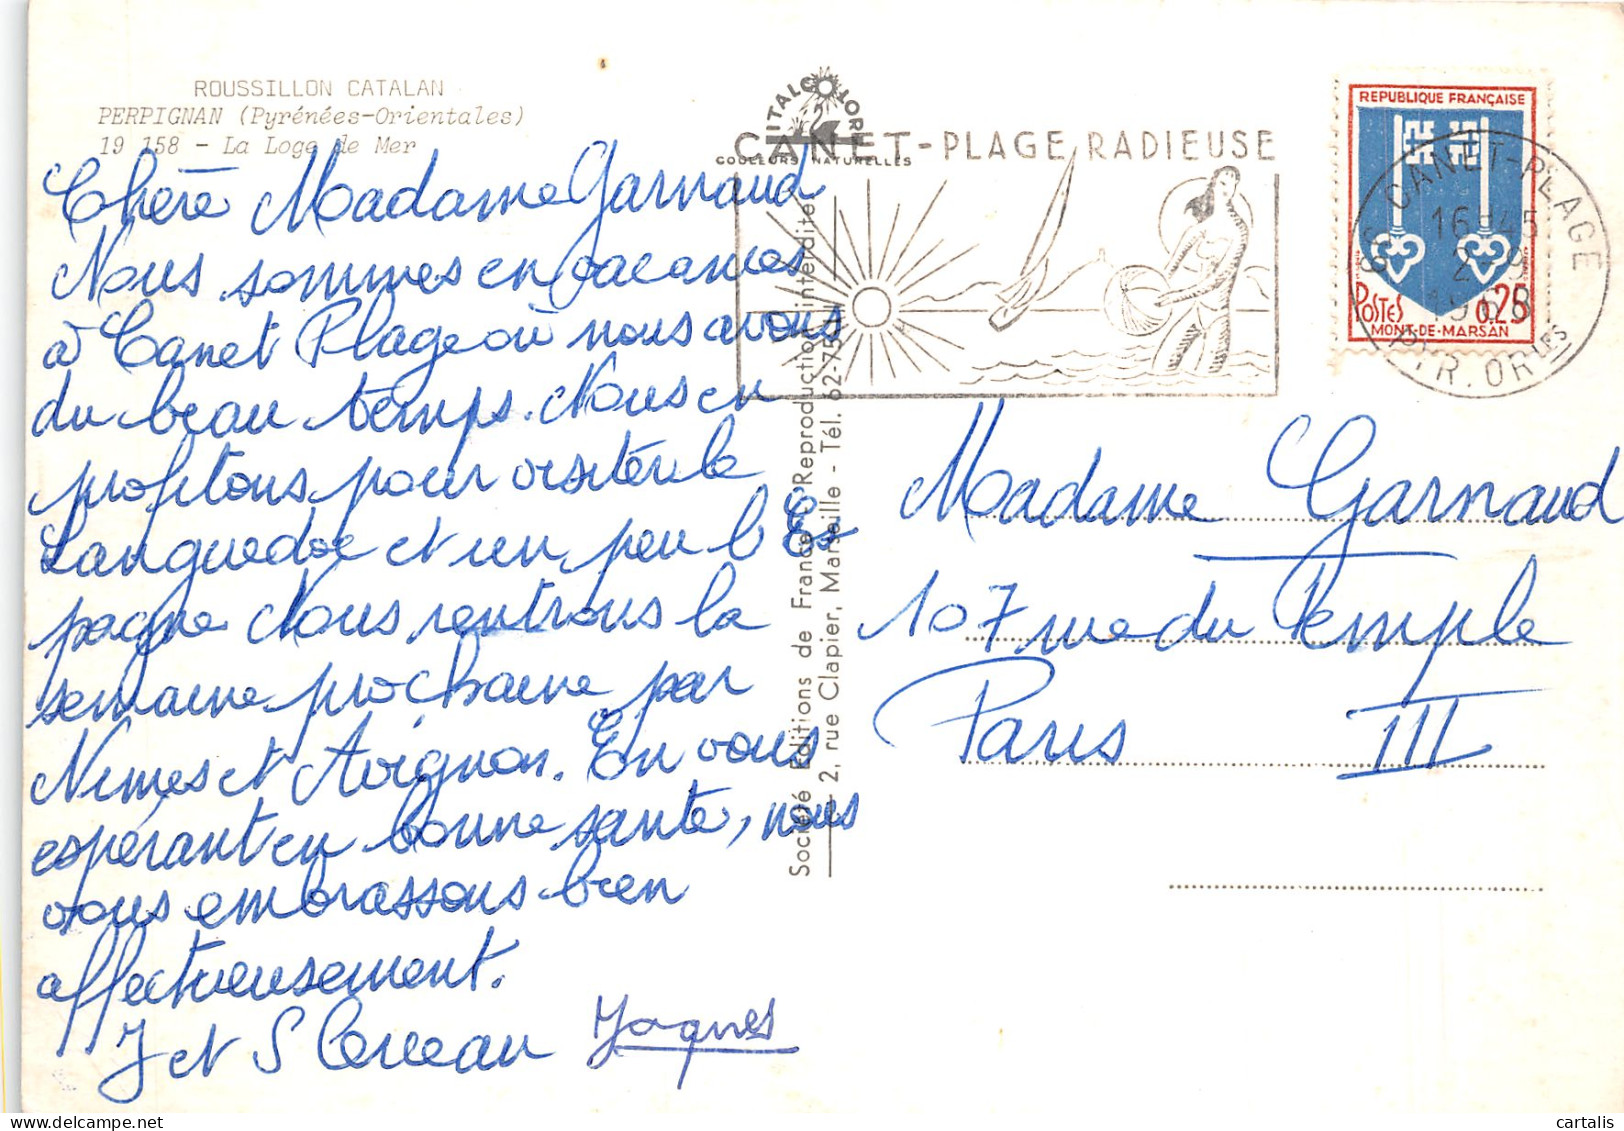 ROUSSILLON CATALAN
PERPIGNAN (Pyrénées-Orientales)
19 158 - La Loge de Mer
Chère Madame Garnaud
Nous sommes en vacances
à Canet Plage où nous avons
du beau temps. Nous en
profitons pour visiter le
Languedoc et un peu l'Es
pagne Nous rentrons la
semaine prochaine par
Nimes et Avignon. En vous
espérant en bonne santé, nous
vous embrassons bien
affectueusement.
J et S
Jacques
ITALCOLOR
COULEURS NATURELLES
Société Editions de France - Reproduction interdite
2, rue Clapier, Marseille - Tél. 62-75
CANET-PLAGE RADIEUSE
REPUBLIQUE FRANÇAISE
POSTES 0,25
MONT-DE-MARSAN
66 CANET-PLAGE
16 H 45
2-9
PYR. ORles
Madame Garnaud
107 rue du Temple
Paris III
cartalis
www.delcampe.net